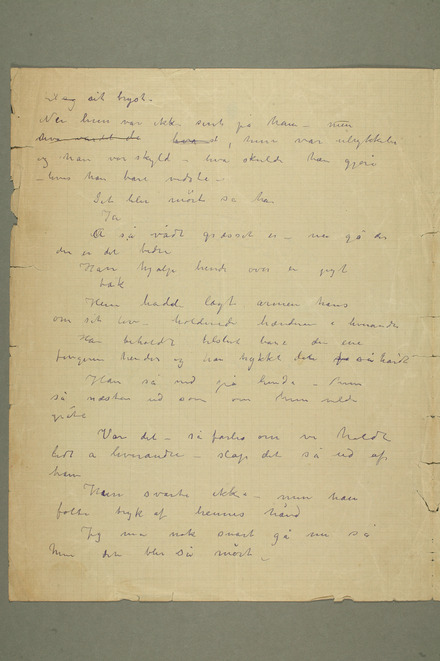 sit bryst.
Nei hun var ikke sint på ham – men
hvad, hun var ulykkelig
og han var skyld – hva skulde han gjøre
– hvis han bare vidste –
Det blir mørkt sa han
Ja
Å så vådt græsset er – nu gå der
der er det bedre
Han hjalp hende over en gygt
bæk
Hun hadde lagt armen hans
om sit liv – holdende hændene i hverandre
Han beholdt tilslut bare den ene
fingeren hendes og han trykket den så hårdt
Han så ned på hende – hun
så næsten ud som om hun vilde
gråte
Var det – så farlig om vi holdt
lidt a hverandre – slap det så ud af
ham
Hun svarte ikke – men han
følte tryk af hennes hånd
Jeg må nok snart gå nu så
hun det blir så mørkt –